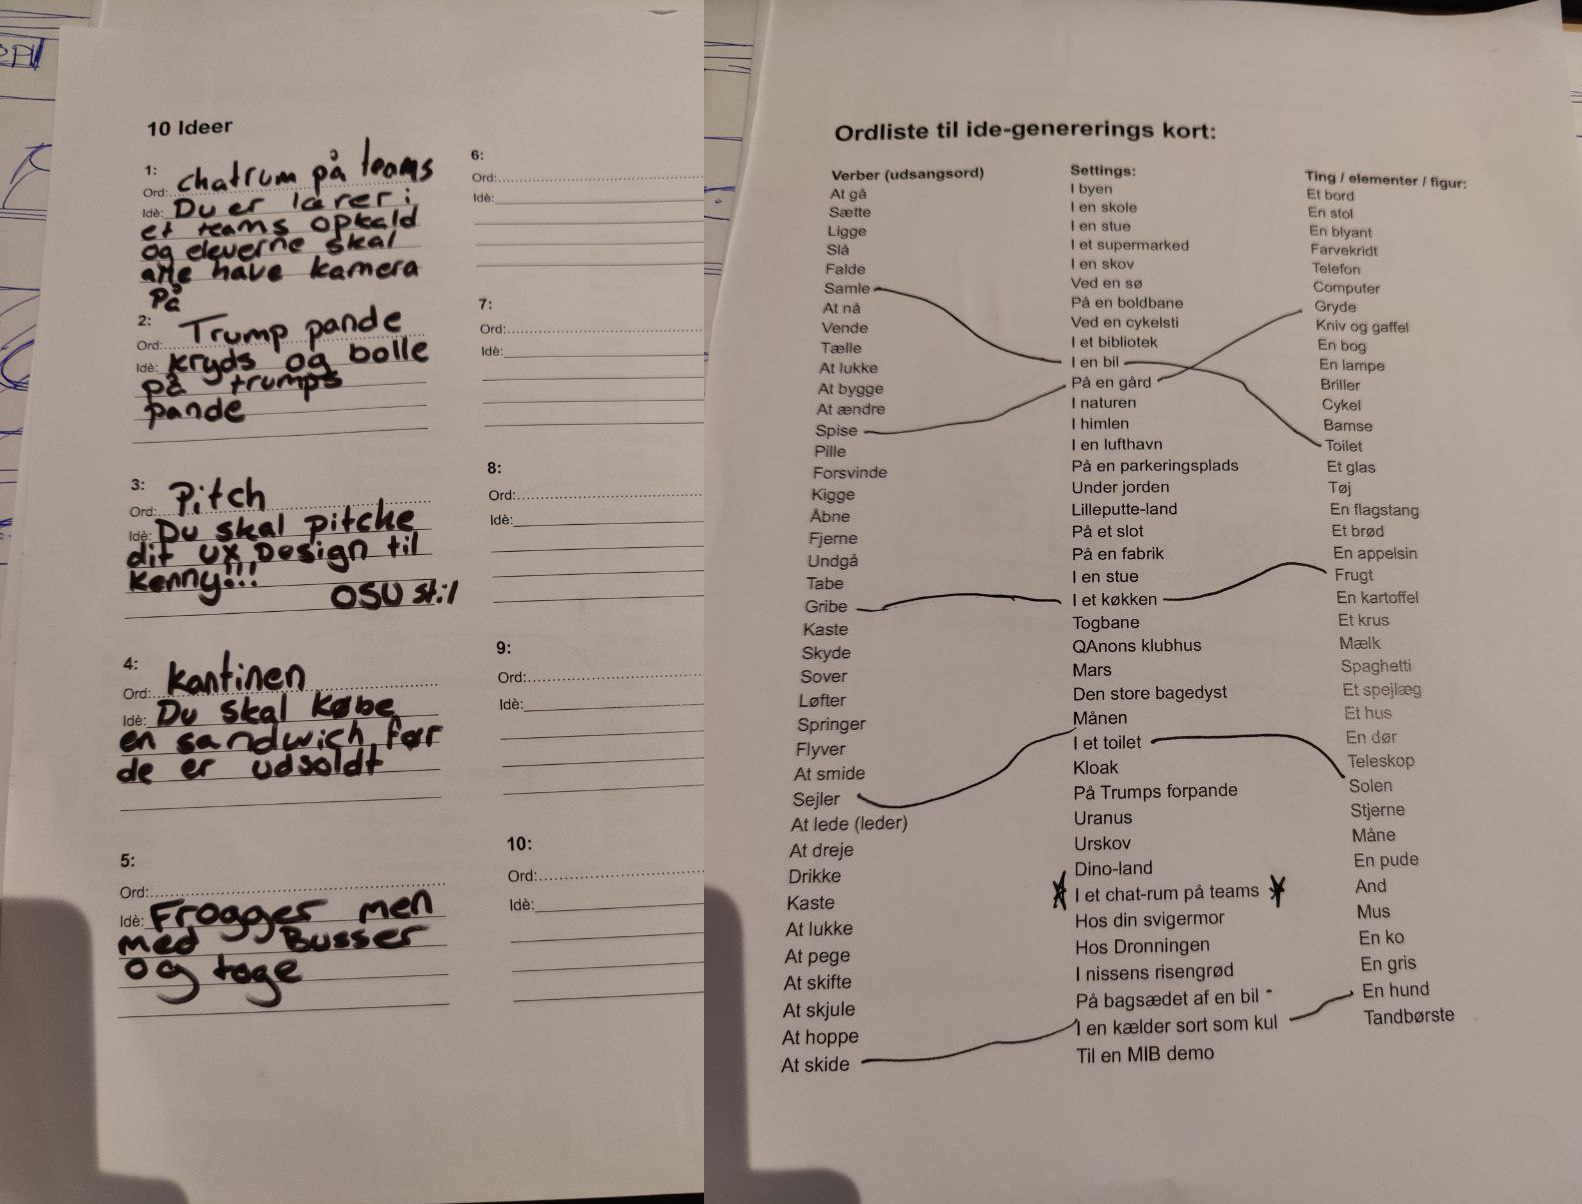 10 Ideer
1:
Ord: chatrum på teams
Idè: Du er lærer i
et teams opkald
og eleverne skal
alle have kamera
på
2:
Ord: Trump pande
Idè: kryds og bolle
på trumps
pande
3:
Ord: Pitch
Idè: Du skal pitche
dit UX Design til
Kenny!!!
OSU stil
4:
Ord: Kantinen
Idè: Du skal købe
en sandwich før
de er udsoldt
5:
Ord:
Idè: Frogger men
med Busser
og toge
6:
Ord:
Idè:
7:
Ord:
Idè:
8:
Ord:
Idè:
9:
Ord:
Idè:
10:
Ord:
Idè:
Ordliste til ide-genererings kort:
Verber (udsangsord)
At gå
Sætte
Ligge
Slå
Falde
Samle
At nå
Vende
Tælle
At lukke
At bygge
At ændre
Spise
Pille
Forsvinde
Kigge
Åbne
Fjerne
Undgå
Tabe
Gribe
Kaste
Skyde
Sover
Løfter
Springer
Flyver
At smide
Sejler
At lede (leder)
At dreje
Drikke
Kaste
At lukke
At pege
At skifte
At skjule
At hoppe
At skide
Settings:
I byen
I en skole
I en stue
I et supermarked
I en skov
Ved en sø
På en boldbane
Ved en cykelsti
I et bibliotek
I en bil
På en gård
I naturen
I himlen
I en lufthavn
På en parkeringsplads
Under jorden
Lilleputte-land
På et slot
På en fabrik
I en stue
I et køkken
Togbane
QAnons klubhus
Mars
Den store bagedyst
Månen
I et toilet
Kloak
På Trumps forpande
Uranus
Urskov
Dino-land
I et chat-rum på teams
Hos din svigermor
Hos Dronningen
I nissens risengrød
På bagsædet af en bil
I en kælder sort som kul
Til en MIB demo
Ting / elementer / figur:
Et bord
En stol
En blyant
Farvekridt
Telefon
Computer
Gryde
Kniv og gaffel
En bog
En lampe
Briller
Cykel
Bamse
Toilet
Et glas
Tøj
En flagstang
Et brød
En appelsin
Frugt
En kartoffel
Et krus
Mælk
Spaghetti
Et spejlæg
Et hus
En dør
Teleskop
Solen
Stjerne
Måne
En pude
And
Mus
En ko
En gris
En hund
Tandbørste